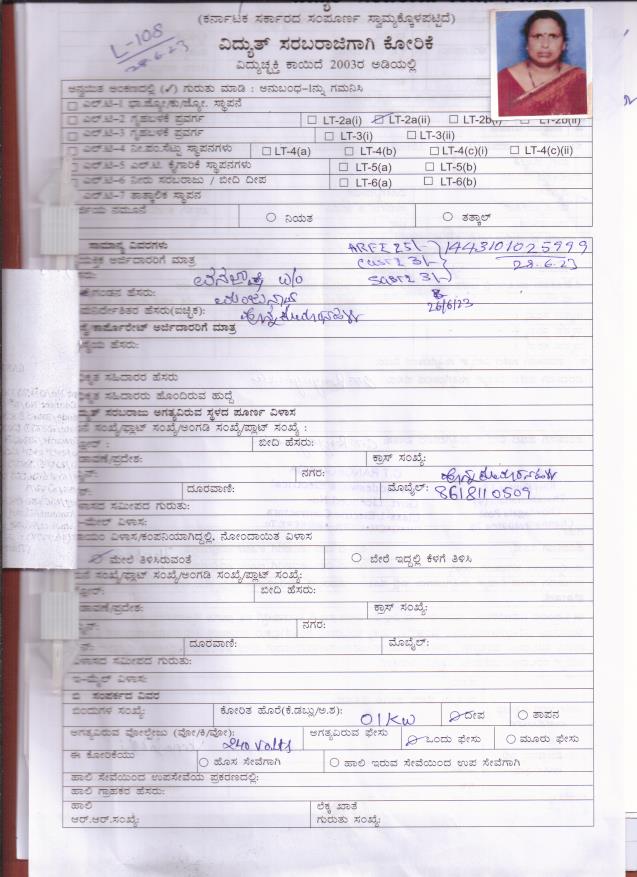 (ಕರ್ನಾಟಕ ಸರ್ಕಾರದ ಸಂಪೂರ್ಣ ಸ್ವಾಮ್ಯಕ್ಕೊಳಪಟ್ಟಿದೆ)
L-108
28.6.23
ವಿದ್ಯುತ್ ಸರಬರಾಜಿಗಾಗಿ ಕೋರಿಕೆ
ವಿದ್ಯುಚ್ಛಕ್ತಿ ಕಾಯಿದೆ 2003ರ ಅಡಿಯಲ್ಲಿ
ಅನ್ವಯಿತ ಅಂಕಣದಲ್ಲಿ (✓) ಗುರುತು ಮಾಡಿ : ಅನುಬಂಧ-1ನ್ನು ಗಮನಿಸಿ
ಎಲ್.ಟಿ-1 ಭಾ.ಜ್ಯೋ/ಕು.ಜ್ಯೋ. ಸ್ಥಾಪನೆ
ಎಲ್.ಟಿ-2 ಗೃಹಬಳಕೆ ಪ್ರವರ್ಗ LT-2a(i) LT-2a(ii) LT-2b(i) LT-2b(ii)
ಎಲ್.ಟಿ-3 ಗೃಹಬಳಕೆ ಪ್ರವರ್ಗ LT-3(i) LT-3(ii)
ಎಲ್.ಟಿ-4 ನೀ.ಪಂ.ಸೆಟ್ಟು ಸ್ಥಾಪನಗಳು LT-4(a) LT-4(b) LT-4(c)(i) LT-4(c)(ii)
ಎಲ್.ಟಿ-5 ಎಲ್.ಟಿ. ಕೈಗಾರಿಕೆ ಸ್ಥಾಪನಗಳು LT-5(a) LT-5(b)
ಎಲ್.ಟಿ-6 ನೀರು ಸರಬರಾಜು / ಬೀದಿ ದೀಪ LT-6(a) LT-6(b)
ಎಲ್.ಟಿ-7 ತಾತ್ಕಾಲಿಕ ಸ್ಥಾಪನ
ನಮೂನೆ ನಿಯತ ತತ್ಕಾಲ್
ಸಾಮಾನ್ಯ ವಿವರಗಳು ARFE 25/- 1443101025999
ಅರ್ಜಿದಾರರಿಗೆ ಮಾತ್ರ CGST 2 3/- 28.6.23
SGST 2 3/-
W/o
ಗಂಡನ ಹೆಸರು: 26/6/23
ಹೆಸರು(ಐಚ್ಛಿಕ):
ಕಾರ್ಪೊರೇಟ್ ಅರ್ಜಿದಾರರಿಗೆ ಮಾತ್ರ
ಹೆಸರು:
ಸಹಿದಾರರ ಹೆಸರು
ಸಹಿದಾರರು ಹೊಂದಿರುವ ಹುದ್ದೆ
ಸರಬರಾಜು ಅಗತ್ಯವಿರುವ ಸ್ಥಳದ ಪೂರ್ಣ ವಿಳಾಸ
ಸಂಖ್ಯೆ/ಫ್ಲಾಟ್ ಸಂಖ್ಯೆ/ಅಂಗಡಿ ಸಂಖ್ಯೆ/ಪ್ಲಾಟ್ ಸಂಖ್ಯೆ :
ಬೀದಿ ಹೆಸರು:
ಕ್ರಾಸ್ ಸಂಖ್ಯೆ:
ನಗರ:
ದೂರವಾಣಿ: ಮೊಬೈಲ್: 8618110509
ಸಮೀಪದ ಗುರುತು:
ವಿಳಾಸ:
ವಿಳಾಸ/ಕಂಪನಿಯಾಗಿದ್ದಲ್ಲಿ, ನೋಂದಾಯಿತ ವಿಳಾಸ
ಮೇಲೆ ತಿಳಿಸಿರುವಂತೆ ಬೇರೆ ಇದ್ದಲ್ಲಿ ಕೆಳಗೆ ತಿಳಿಸಿ
ಸಂಖ್ಯೆ/ಫ್ಲಾಟ್ ಸಂಖ್ಯೆ/ಅಂಗಡಿ ಸಂಖ್ಯೆ/ಪ್ಲಾಟ್ ಸಂಖ್ಯೆ:
ಬೀದಿ ಹೆಸರು:
ಕ್ರಾಸ್ ಸಂಖ್ಯೆ:
ನಗರ:
ದೂರವಾಣಿ: ಮೊಬೈಲ್:
ಸಮೀಪದ ಗುರುತು:
ಇ-ಮೈಲ್ ವಿಳಾಸ:
ಸಂಪರ್ಕದ ವಿವರ
ಬಿಂದುಗಳ ಸಂಖ್ಯೆ: ಕೋರಿತ ಹೊರೆ(ಕೆ.ಡಬ್ಲು/ಅ.ಶ): 01KW ದೀಪ ತಾಪನ
ಅಗತ್ಯವಿರುವ ವೋಲ್ಟೇಜು (ವೋ/ಕಿ/ವೋ): 240 Volts ಅಗತ್ಯವಿರುವ ಫೇಸು ಒಂದು ಫೇಸು ಮೂರು ಫೇಸು
ಈ ಕೋರಿಕೆಯು ಹೊಸ ಸೇವೆಗಾಗಿ ಹಾಲಿ ಇರುವ ಸೇವೆಯಿಂದ ಉಪ ಸೇವೆಗಾಗಿ
ಹಾಲಿ ಸೇವೆಯಿಂದ ಉಪಸೇವೆಯ ಪ್ರಕರಣದಲ್ಲಿ:
ಹಾಲಿ ಗ್ರಾಹಕರ ಹೆಸರು:
ಹಾಲಿ ಲೆಕ್ಕ ಖಾತೆ
ಆರ್.ಆರ್.ಸಂಖ್ಯೆ: ಗುರುತು ಸಂಖ್ಯೆ: